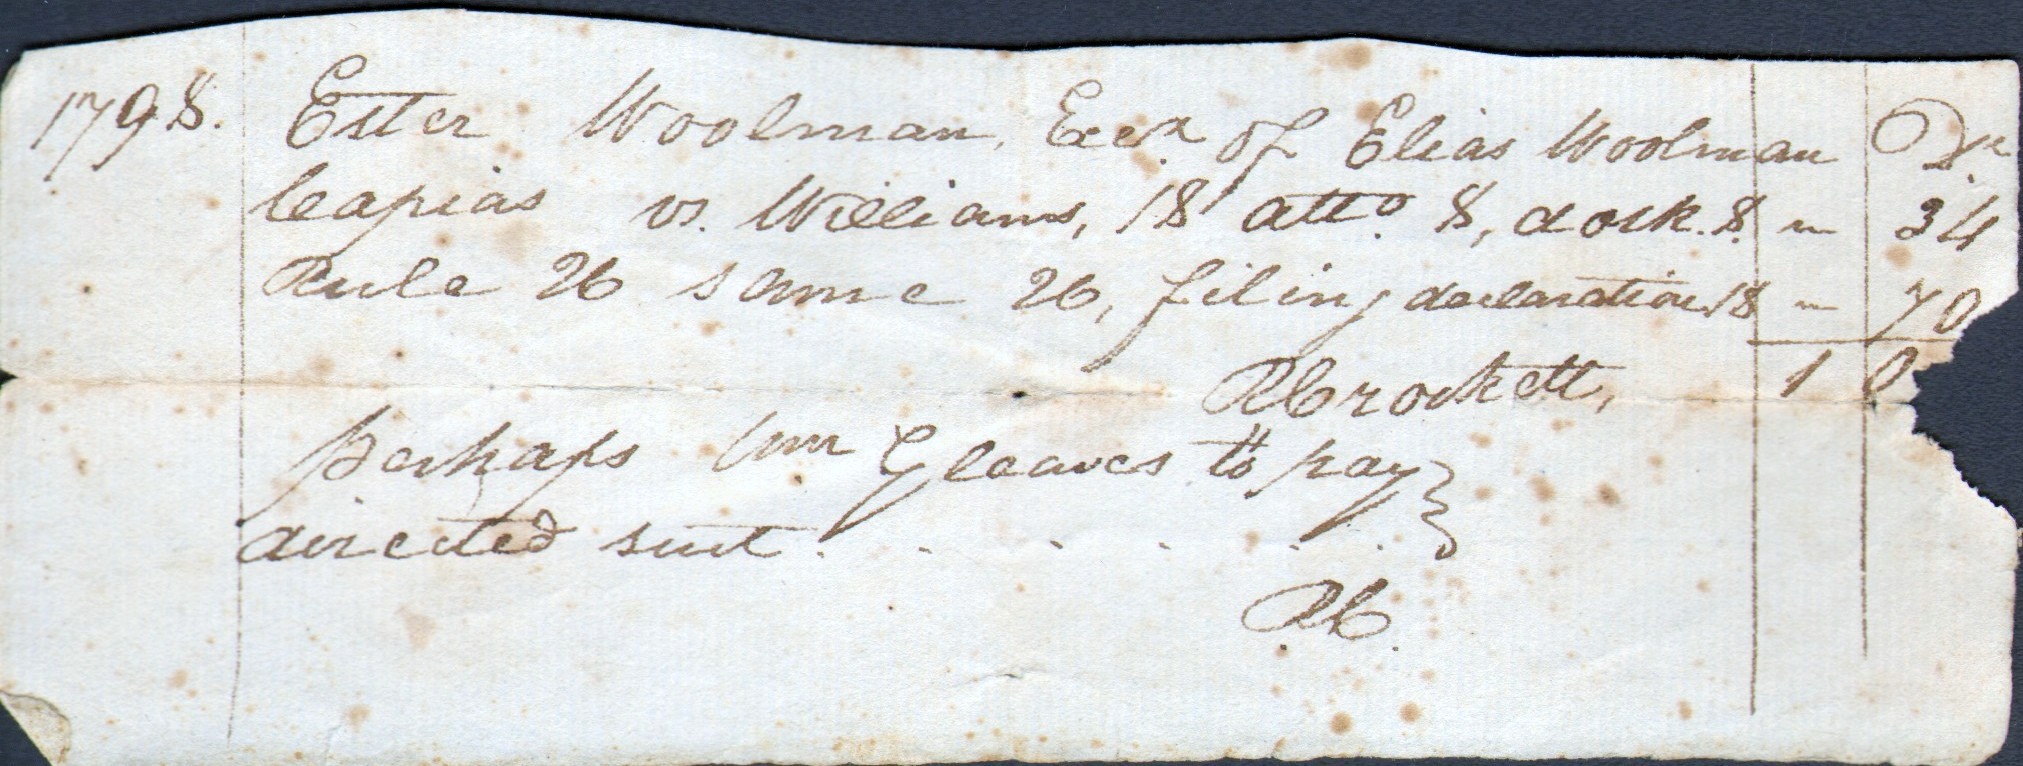 1798. Ester Woolman, Eexx of Elias Woolman Dr
Capias vs. Williams, 18 atto. 8, dock. 8. " 34
Rule 26 same 26, filing declaration 18 " 70
RCrockett, 1 0
perhaps Wm Gleaves to pay
directed suit . . . . .
RC.